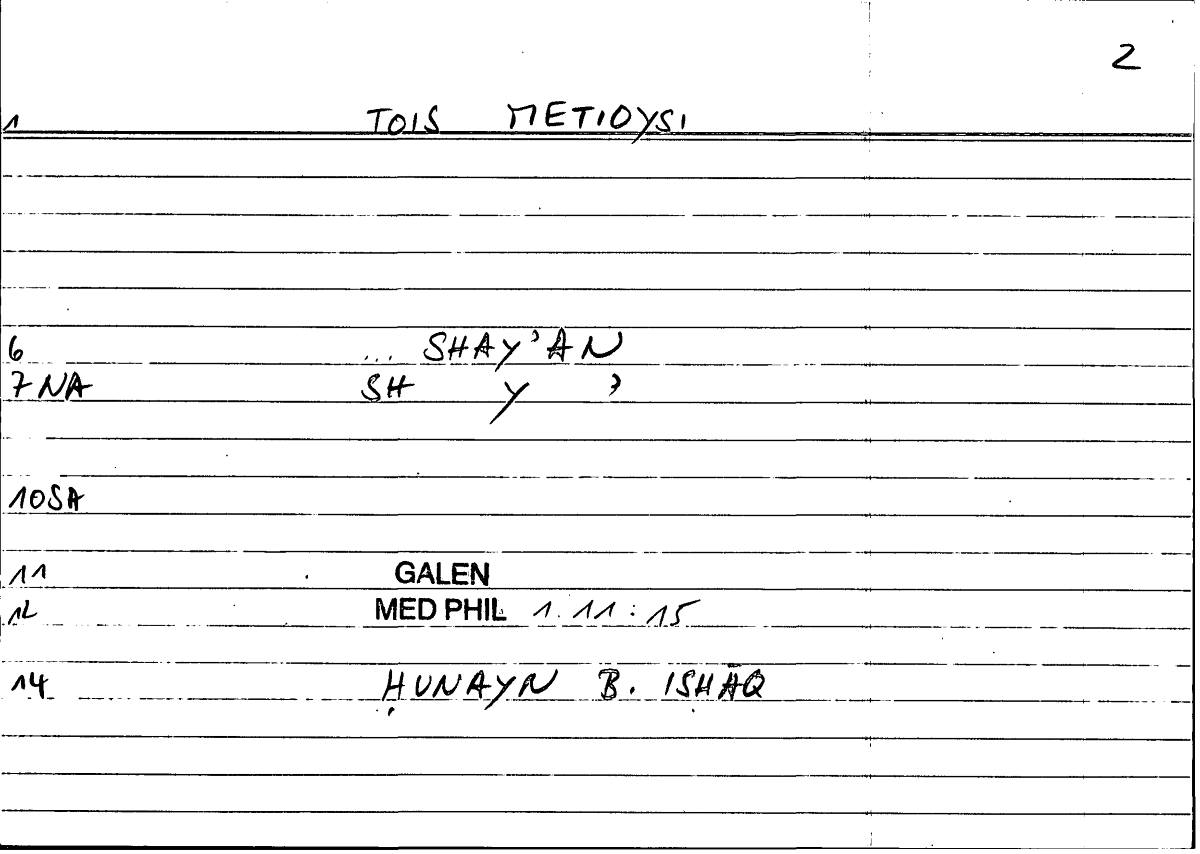 2
1 TOIS METIOYSI
6 ... SHAY'AN
7 NA SH Y '
10 SA
11 GALEN
12 MED PHIL 1.11:15
14 ḤUNAYN B. ISḤĀQ